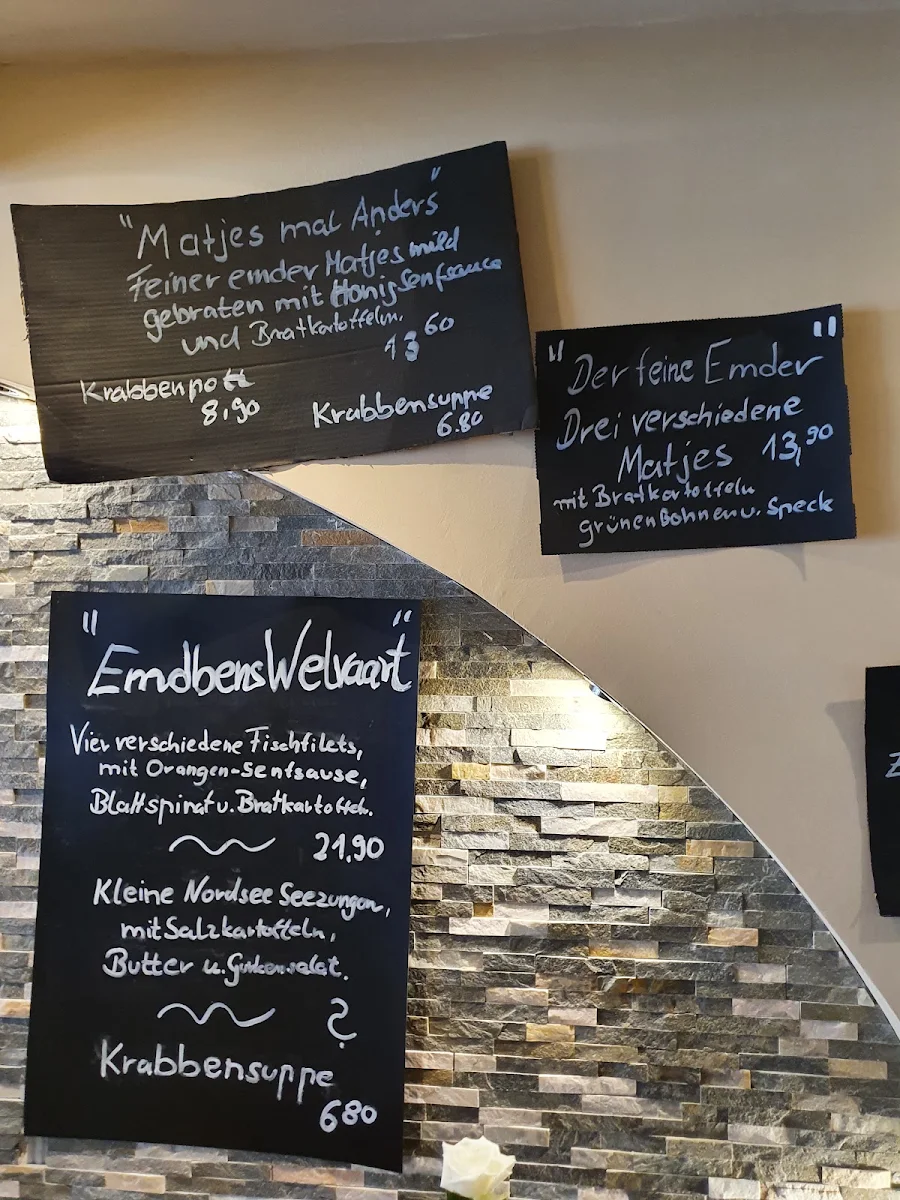 "Matjes mal Anders"
Feiner emder Matjes mild
gebraten mit Honig Senfsauce
und Bratkartoffeln.
13 60
Krabbenpott
8,90
Krabbensuppe
6.80
" Der feine Emder "
Drei verschiedene
Matjes 13,90
mit Bratkartoffeln
grünen Bohnen u. Speck
" Emdbens Welvaart "
Vier verschiedene Fischfilets,
mit Orangen-Senfsause,
Blattspinat u. Bratkartoffeln.
21.90
Kleine Nordsee Seezungen,
mit Salzkartoffeln,
Butter u. Gurkensalat.
?
Krabbensuppe
680
Z